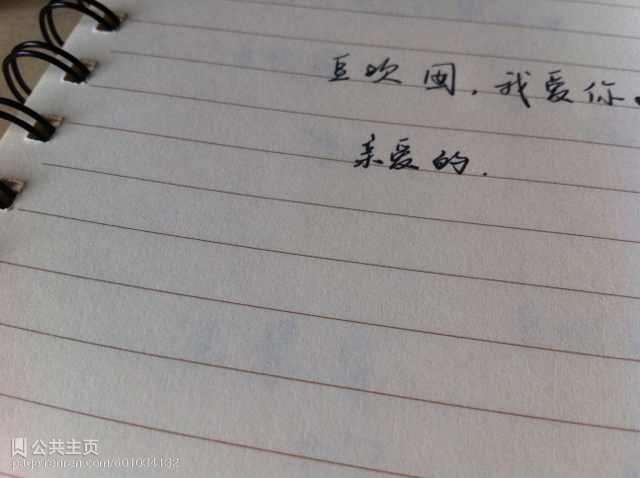 豆吹困，我爱你。
亲爱的.
公共主页
page.renren.com/601034132